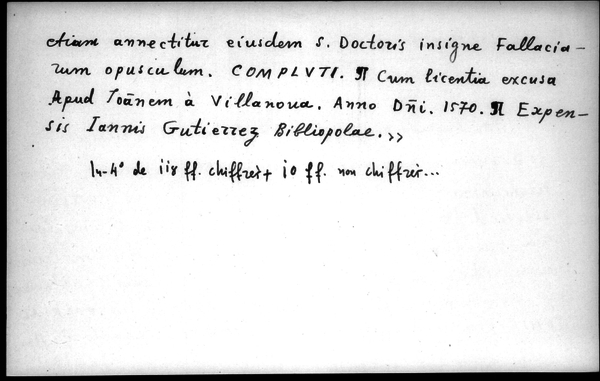 etiam annectitur eiusdem S. Doctoris insigne Fallacia-
rum opusculum. COMPLVTI. ¶ Cum licentia excusa
Apud Ioānem à Villanoua. Anno Dñi. 1570. ¶ Expen-
sis Iannis Gutierrez Bibliopolae.»
In-4° de 118 ff. chiffrés + 10 ff. non chiffrés...